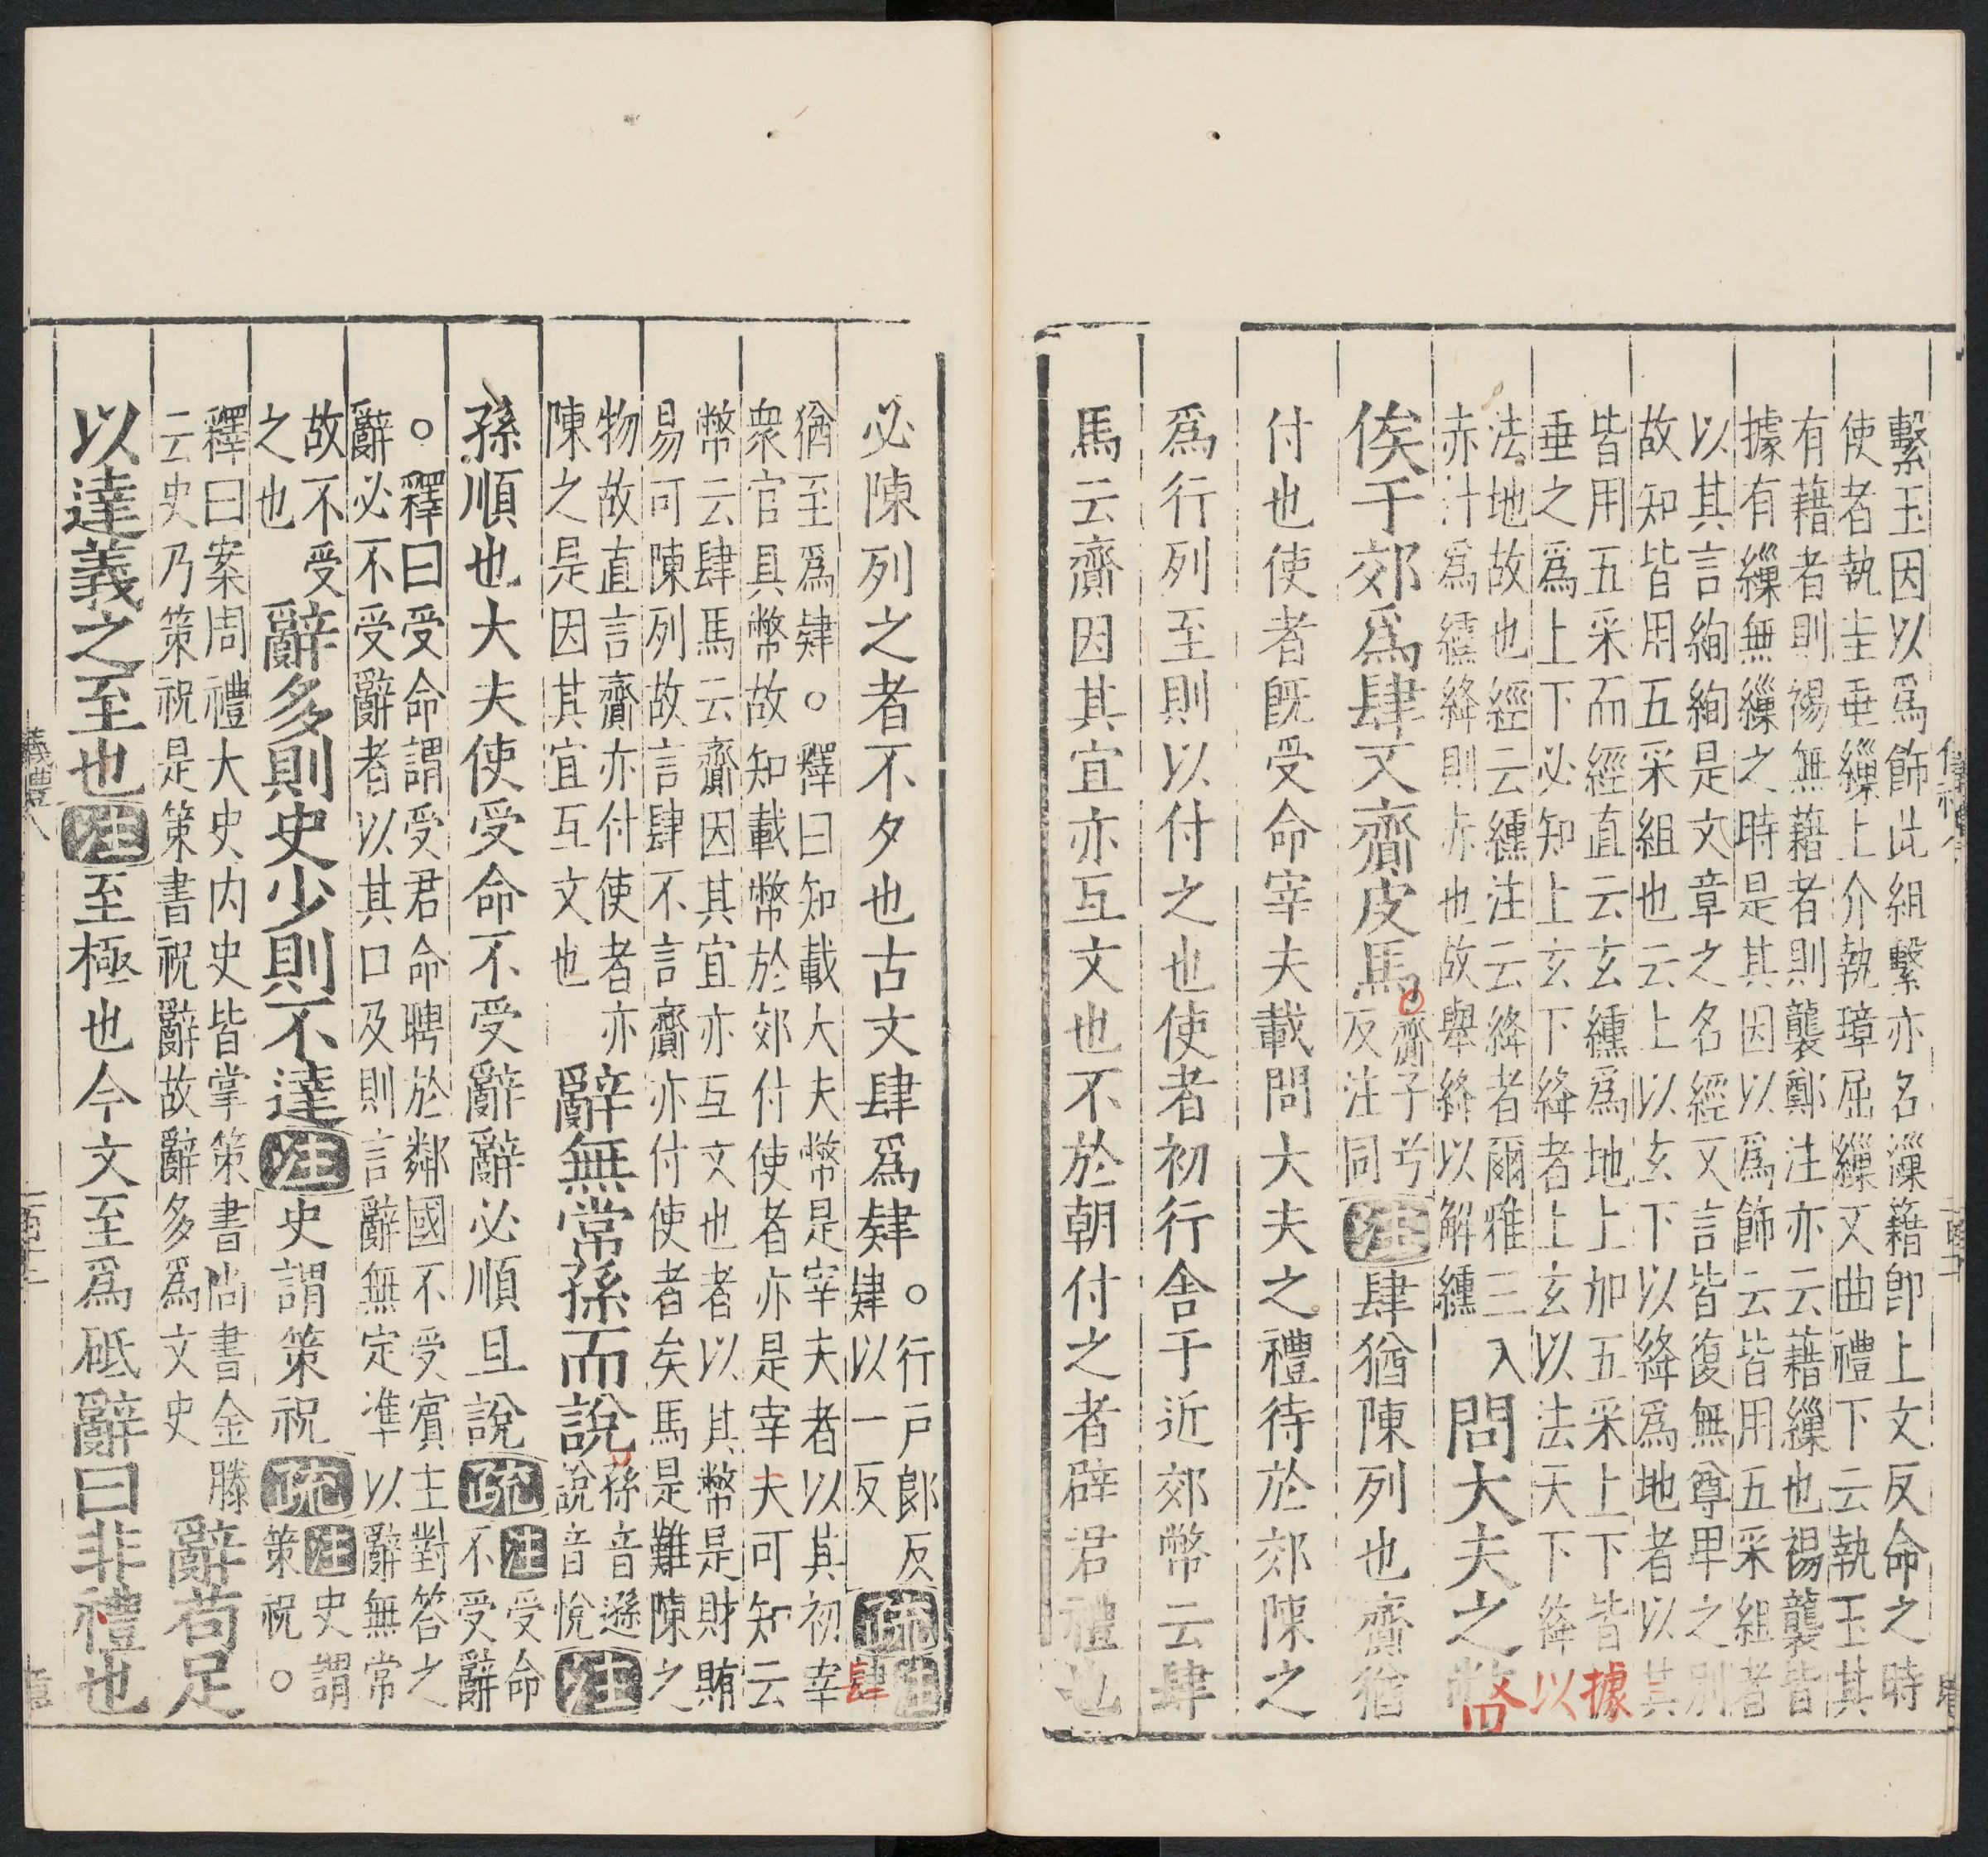 繫玉因以爲飾此組繫亦名繅籍卽上文反命之時
使者執圭垂繅上介執璋屈繅又曲禮下云執玉其
有藉者則裼無藉者則襲鄭注亦云藉繅也裼襲皆
據有繅無繅之時是其因以爲飾云皆用五采組者
以其言絢絢是文章之名經又言皆復無尊卑之別
故知皆用五采組也云上以玄下以絳爲地者以其
皆用五采而經直云玄纁爲地上加五采上下皆據
垂之爲上下必知上玄下絳者上玄以法天下絳以
法地故也經云纁注云絳者爾雅三入
赤汁爲纁絳則赤也故舉絳以解纁
問大夫之幣
俟于郊爲肆又齎皮馬
齎子兮
反注同
注肆猶陳列也齎猶
付也使者旣受命宰夫載問大夫之禮待於郊陳之
爲行列至則以付之也使者初行舍于近郊幣云肆
馬云齎因其宜亦互文也不於朝付之者辟君禮也
必陳列之者不夕也古文肆爲肂。
行戶郎反
肂以一反
疏
注肆
猶至爲肂。釋曰知載大夫幣是宰夫者以其初宰
衆官具幣故知載幣於郊付使者亦是宰夫可知云
幣云肆馬云齎因其宜亦互文也者以其幣是財賄
易可陳列故言肆不言齎亦付使者矣馬是難陳之
物故直言齎亦付使者亦
陳之是因其宜互文也
辭無常孫而說
孫音遜
說音悅
注
孫順也大夫使受命不受辭辭必順且說疏
注受命
不受辭
。釋曰受命謂受君命聘於鄰國不受賓主對答之
辭必不受辭者以其口及則言辭無定準以辭無常
故不受
之也
辭多則史少則不達注史謂策祝疏
注史謂
策祝。
釋曰案周禮大史内史皆掌策書尚書金縢
云史乃策祝是策書祝辭故辭多爲文史
辭苟足
以達義之至也注至極也今文至爲砥辭曰非禮也